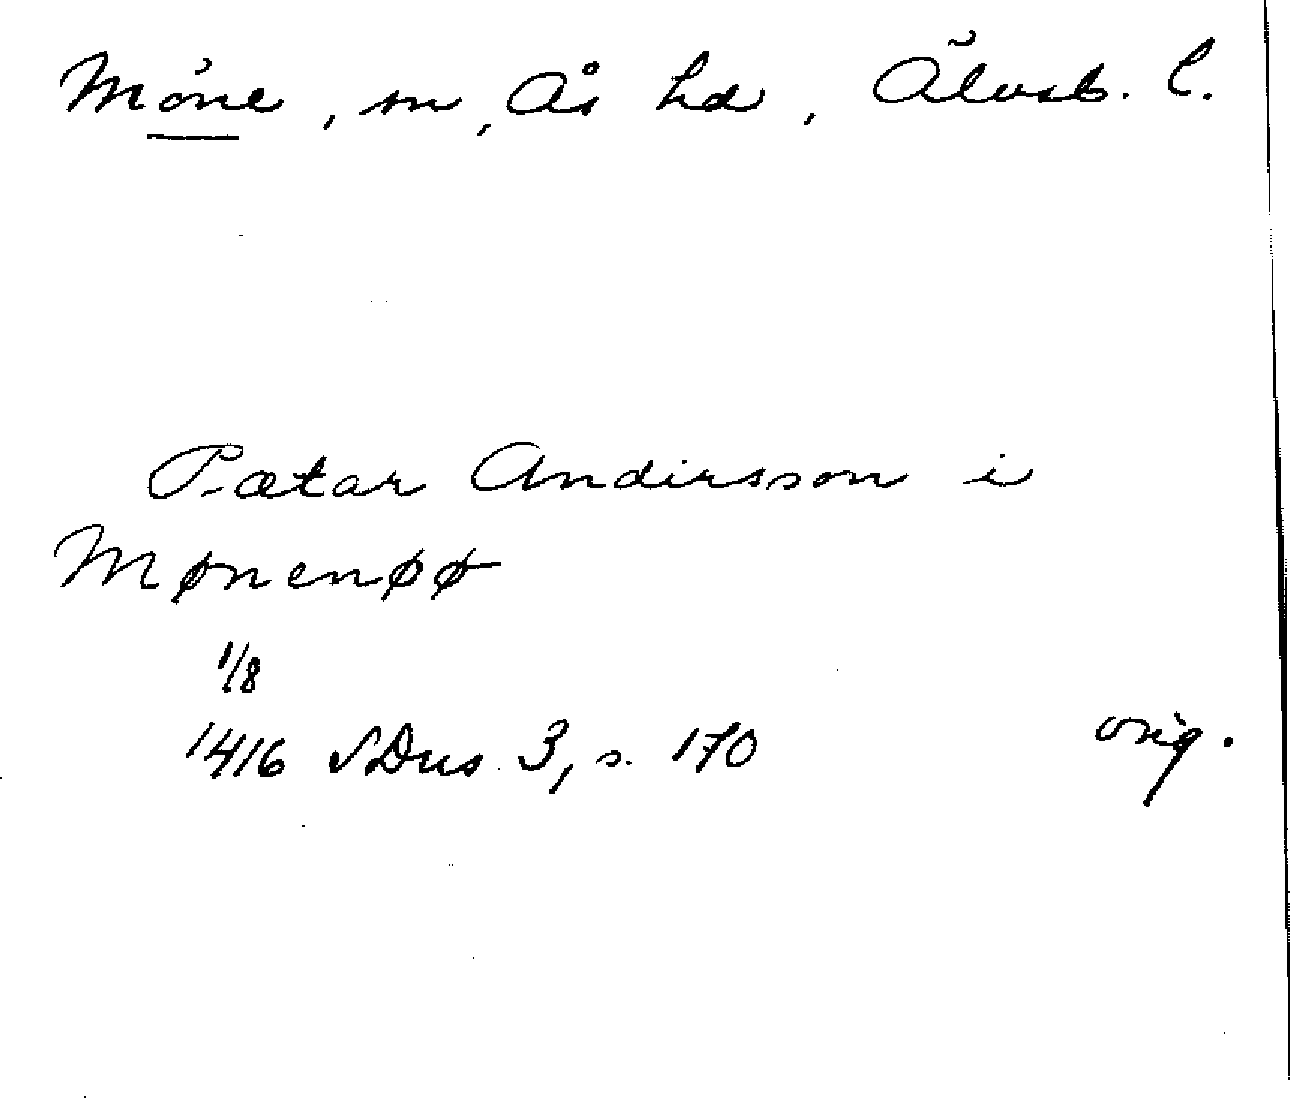 Möne, sn, Ås hd, Älvsb. l.
Pætar Andirsson i
Mønenøø
1/8
1416 SDns 3, s. 170 orig.